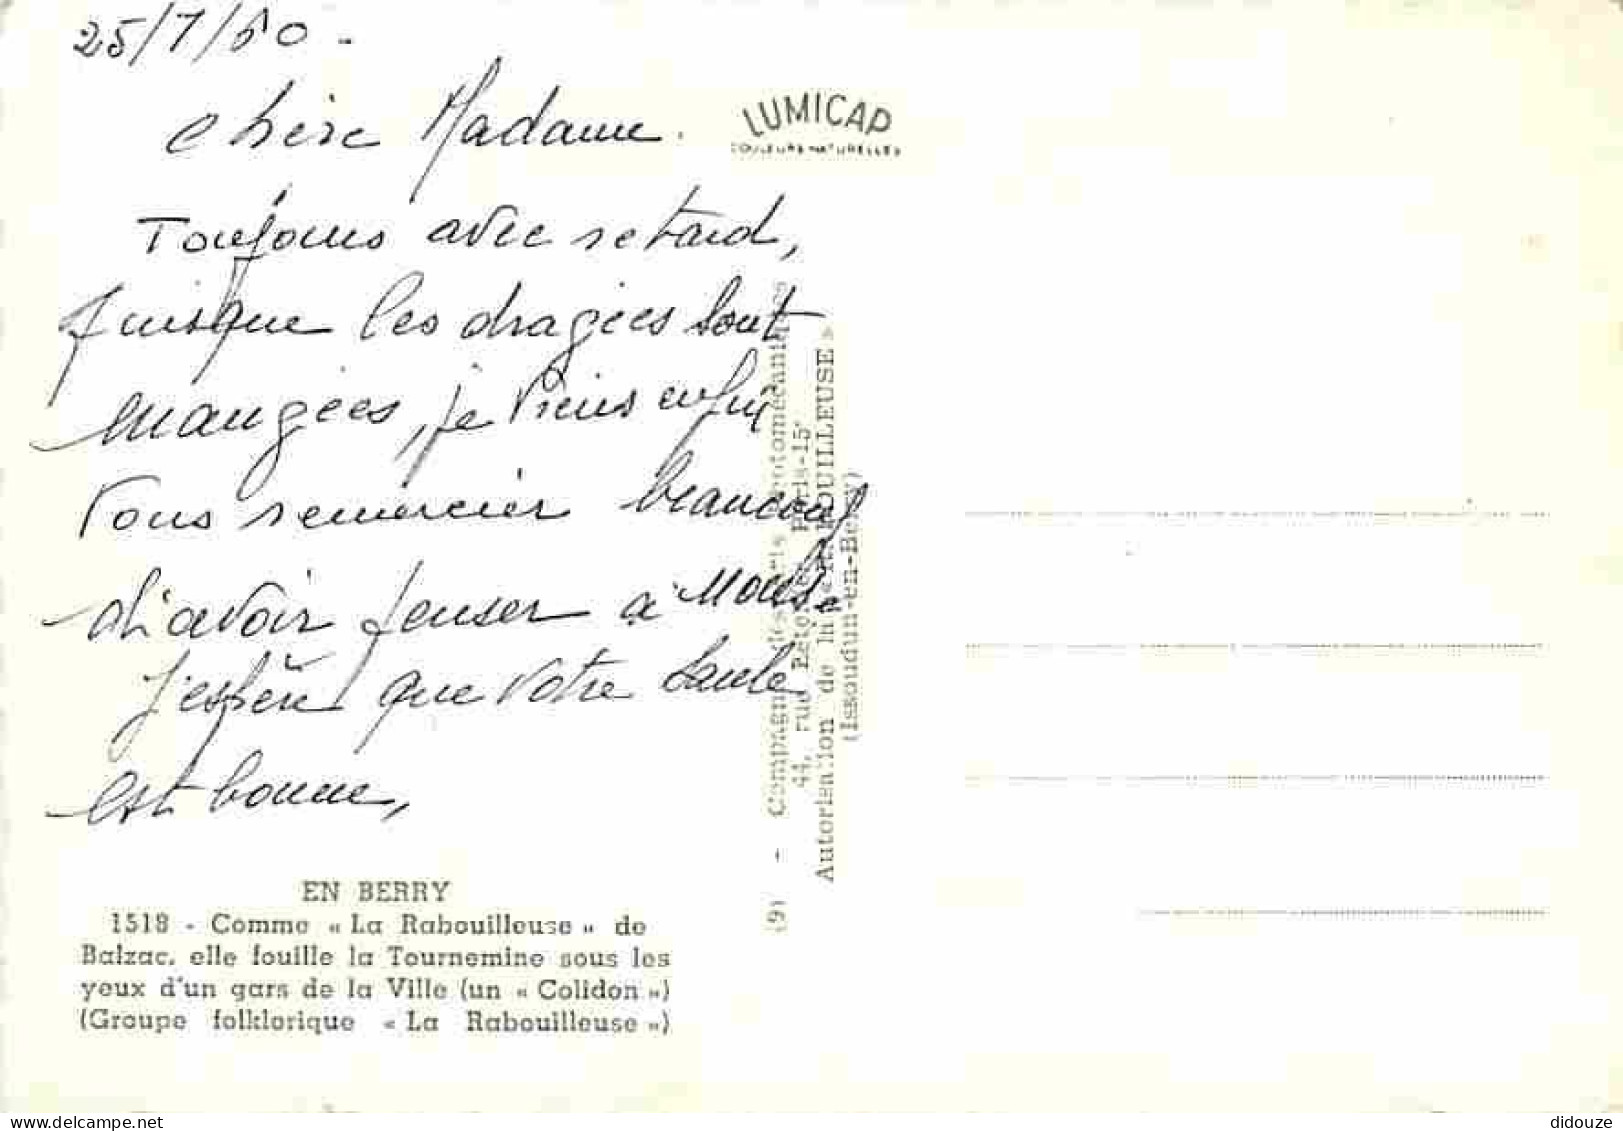 25/7/60.
Chère Madame.
Toujours avec retard,
puisque les dragées sont
mangées, je viens enfin
vous remercier beaucoup
d'avoir penser à nous
J'espère que votre santé
est bonne,
EN BERRY
1518 - Comme « La Rabouilleuse » de
Balzac, elle fouille la Tournemine sous les
yeux d'un gars de la Ville (un « Colidon »)
(Groupe folklorique « La Rabouilleuse »)
LUMICAP
COULEURS NATURELLES
(9) - Compagnie des Arts Photomécaniques
44, rue Paris-15e
Autorisation de la « RABOUILLEUSE »
(Issoudun-en-Berry)
didouze